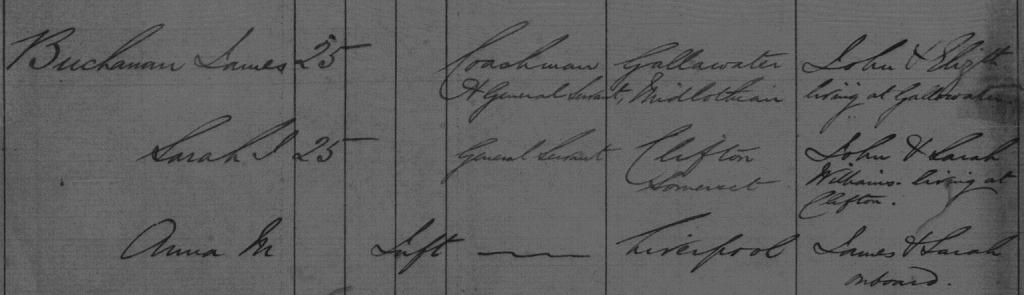 Buchanan James 25 Coachman Gallawater John & Elizth
& General Servant, Midlothian living at Gallawater
Sarah J 25 General Servant Clifton John & Sarah
Somerset Williams. living at
Clifton.
Anna M Inft — Liverpool James & Sarah
onboard.